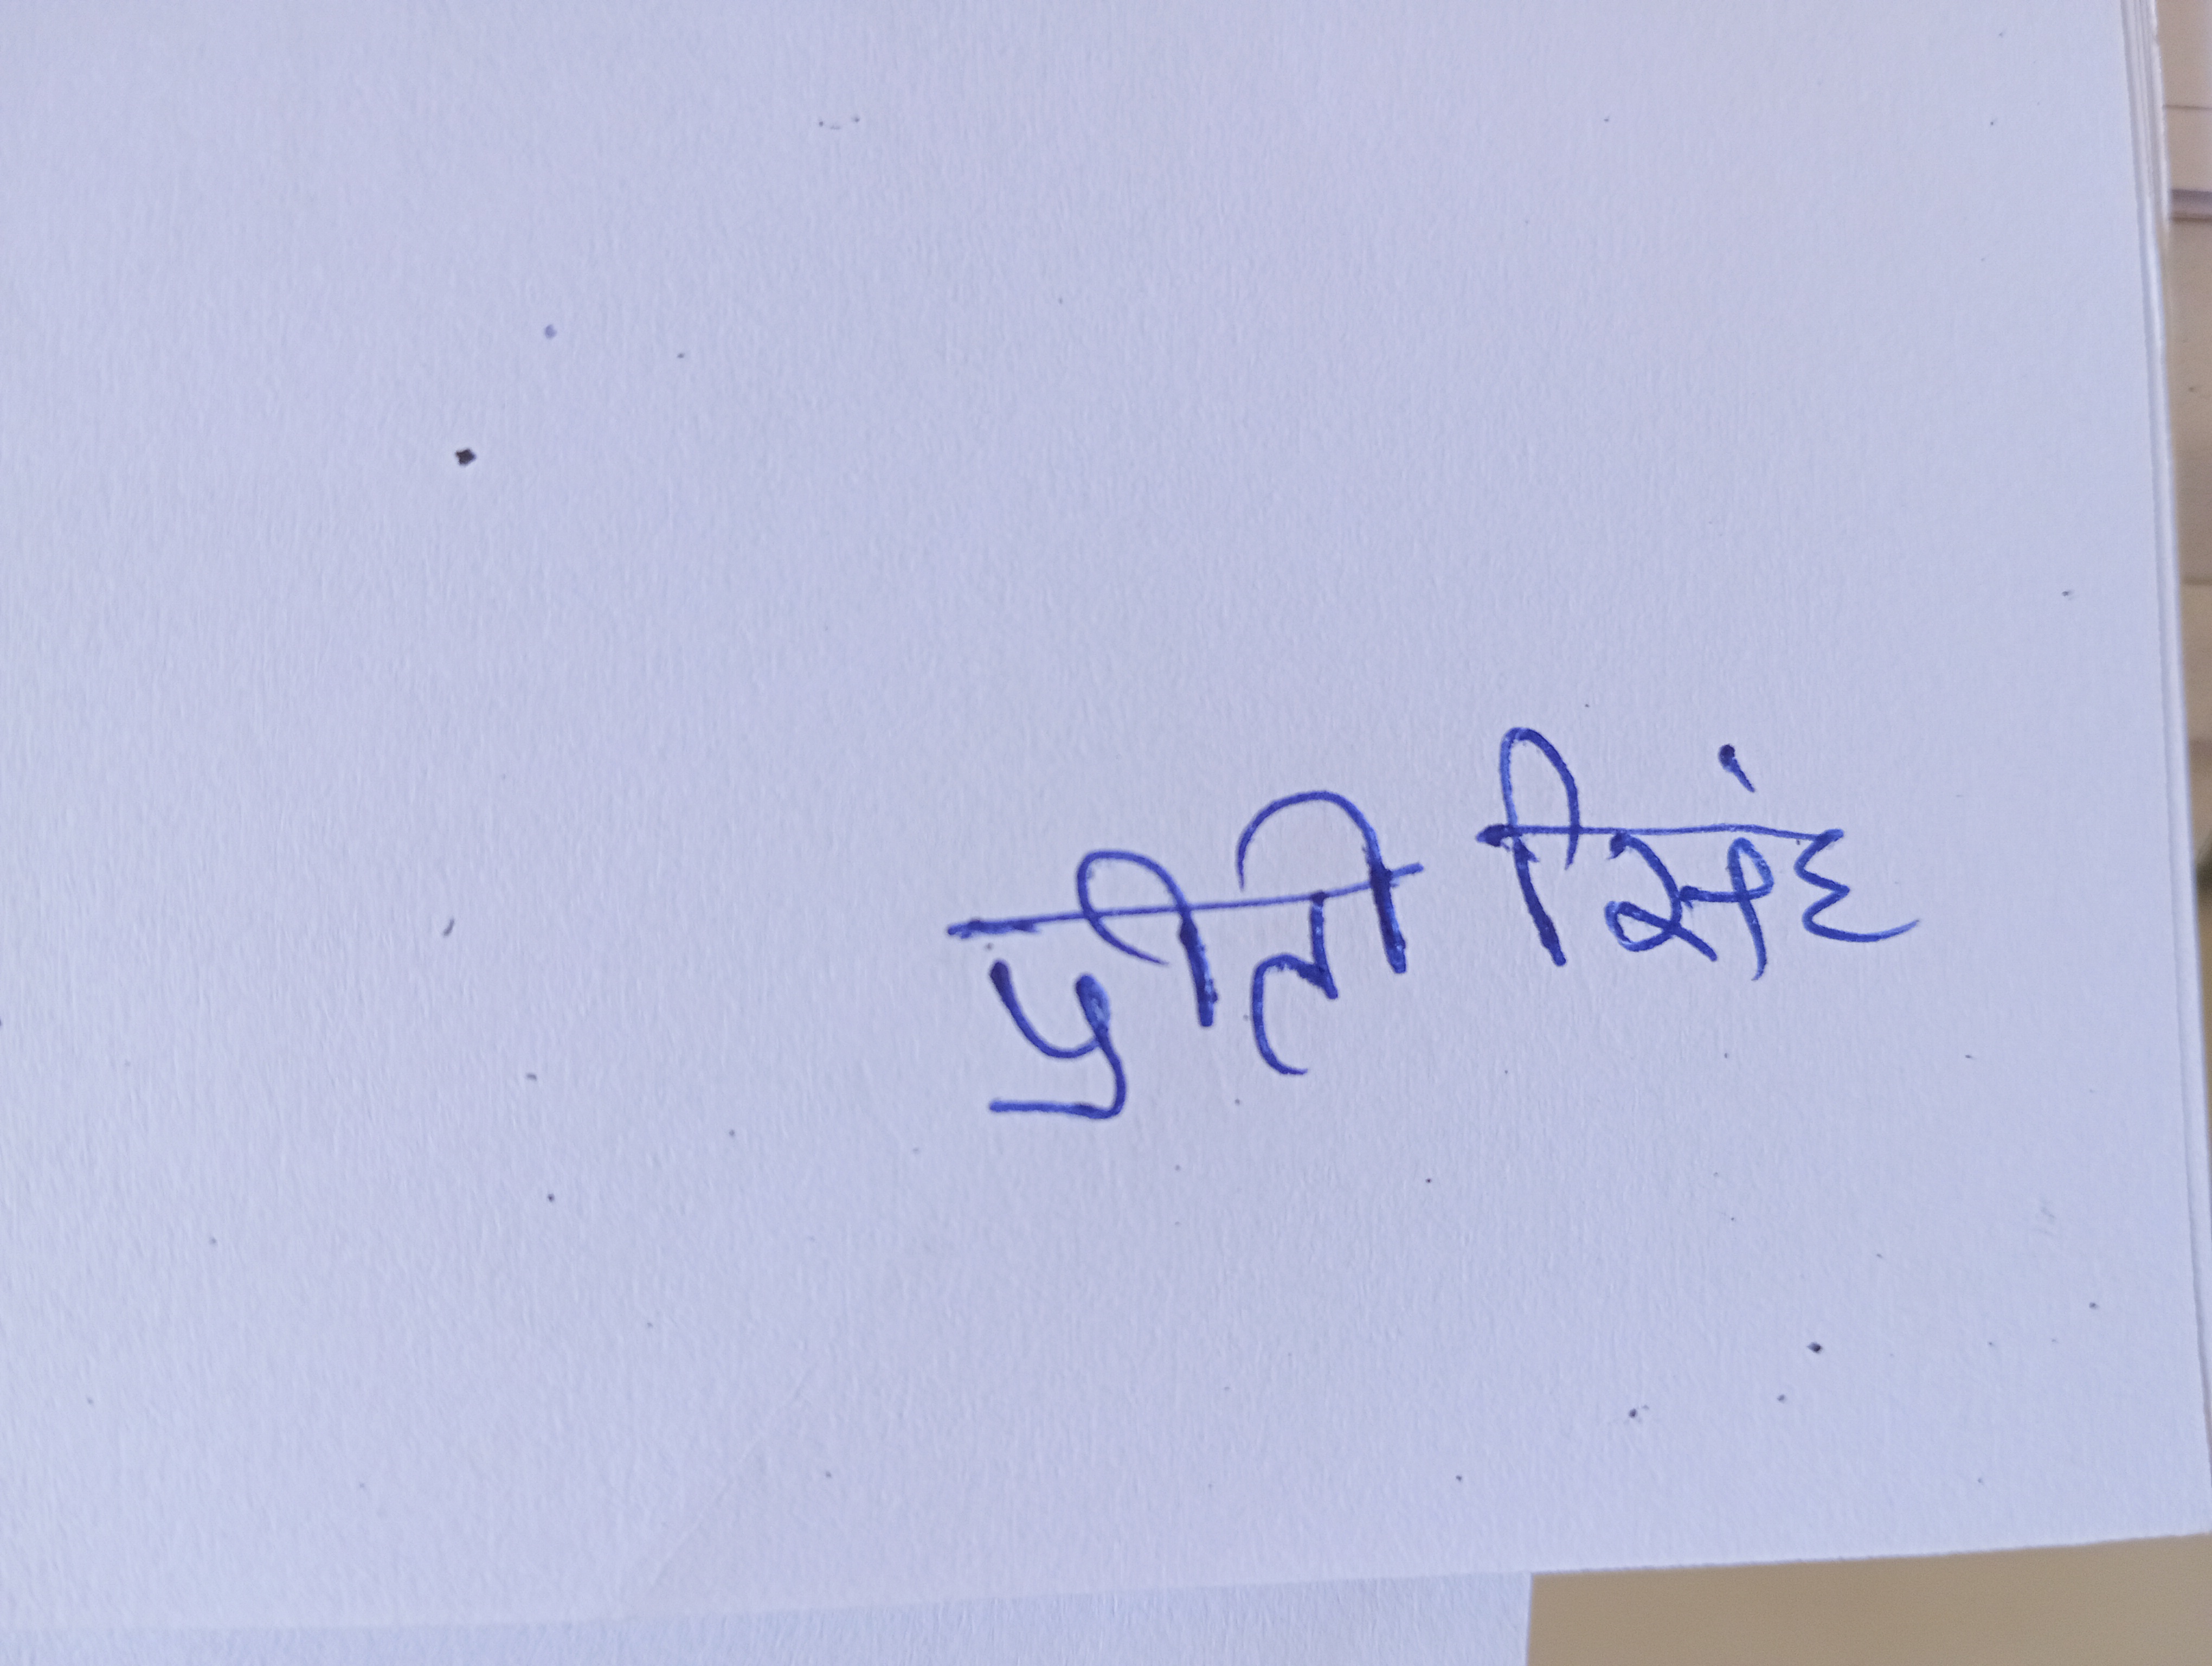 प्रीती सिंह